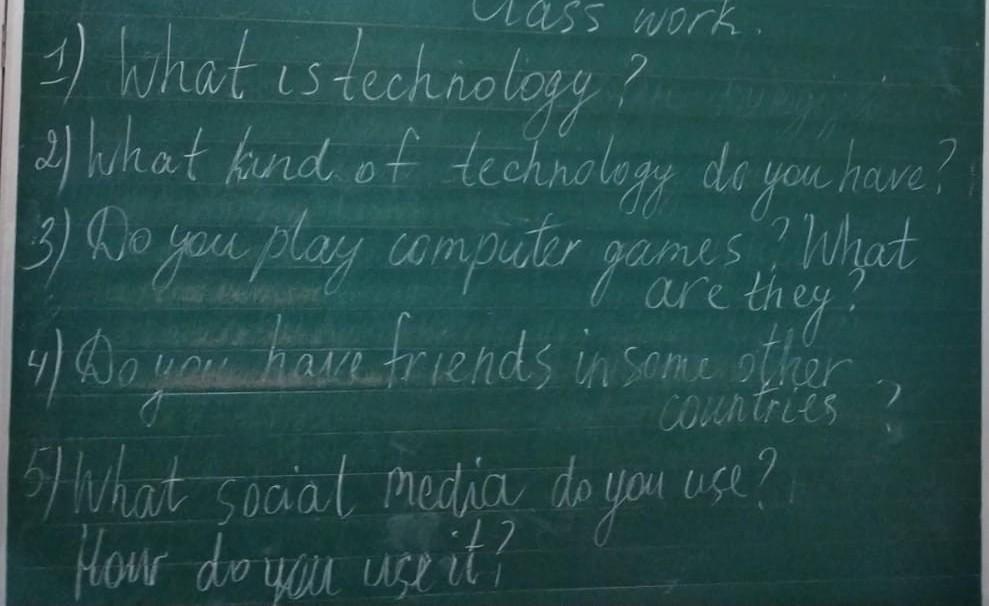 Class work.
1) What is technology?
2) What kind of technology do you have?
3) Do you play computer games? What
are they?
4) Do you have friends in some other
countries?
5) What social media do you use?
How do you use it?